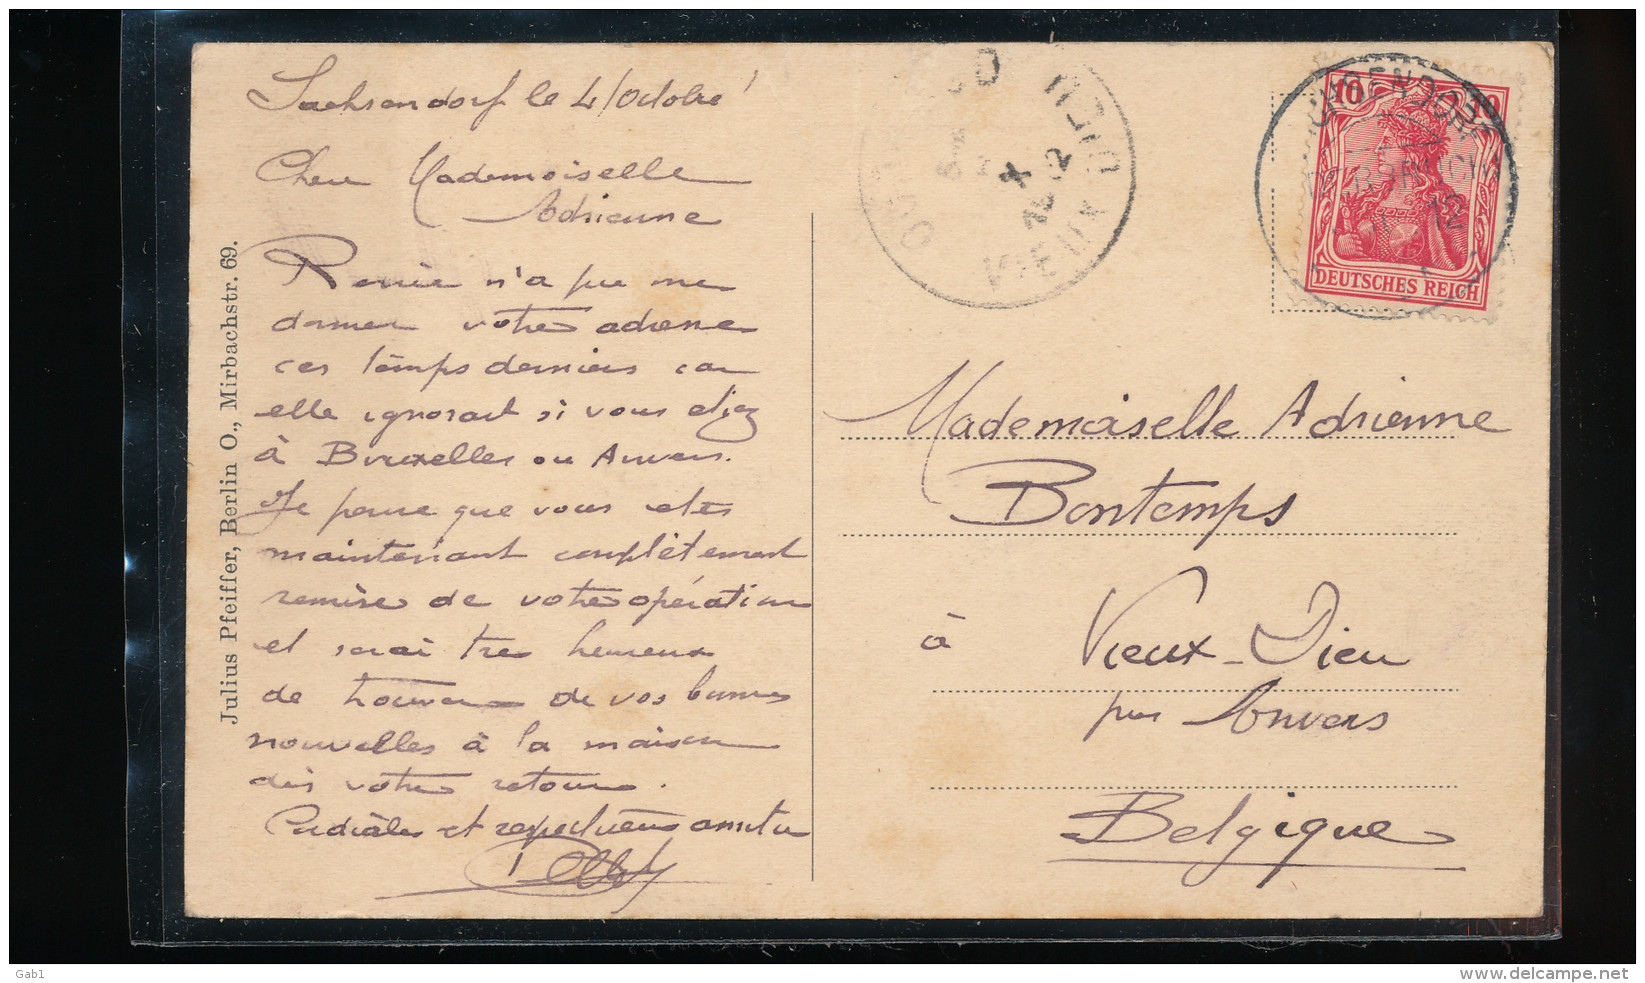 Sachsendorf le 4/Octobre
Chère Mademoiselle
Adrienne
Renée n'a pu me
donner votre adresse
ces temps derniers car
elle ignorait si vous étiez
à Bruxelles ou Anvers.
Je pense que vous etes
maintenant complètement
remise de votre opération
et serai tres heureux
de trouver de vos bonnes
nouvelles à la maison
dès votre retour.
Cordiales et respectueuses amitiés
Julius Pfeiffer, Berlin O., Mirbachstr. 69.
VIEUX DIEU
X
10 10
DEUTSCHES REICH
12
Mademoiselle Adrienne
Bontemps
à Vieux-Dieu
par Anvers
Belgique
Gab1
delcampe.net